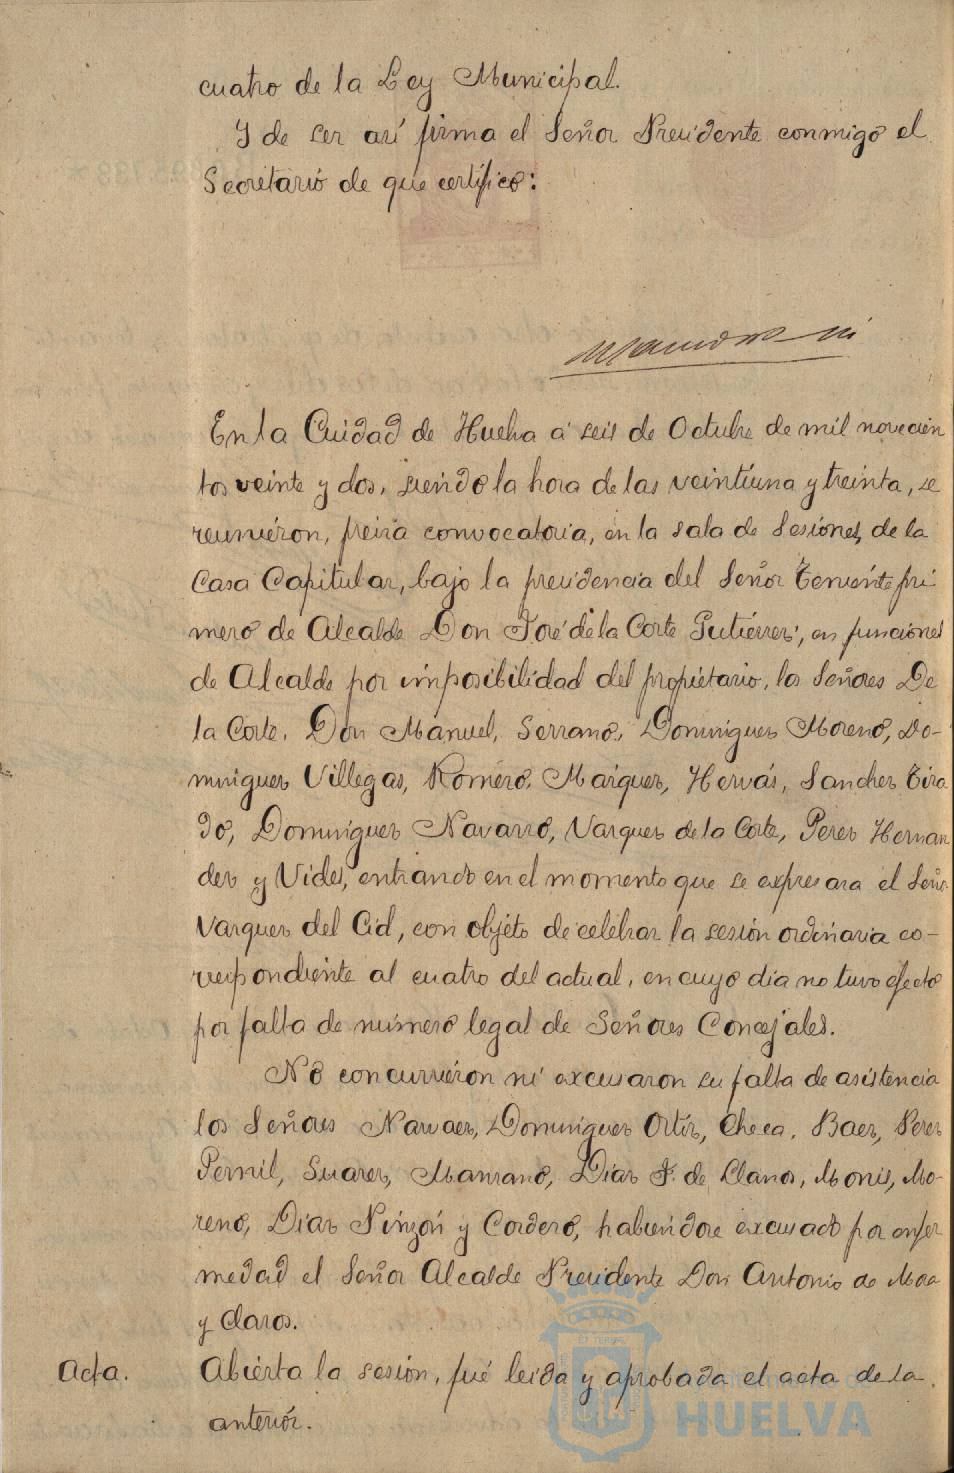 cuatro de la Ley Municipal.
Y de ser así firma el Señor Presidente conmigo el
Secretario de que certifico:
En la Ciudad de Huelva a seis de Octubre de mil novecien
tos veinte y dos, siendo la hora de las veintiuna y treinta, se
reunieron, previa convocatoria, en la sala de Sesiones, de la
Casa Capitular, bajo la presidencia del Señor Teniente pri-
mero de Alcalde Don José de la Corte Gutiérrez, en funciones
de Alcalde por imposibilidad del propietario, los Señores De
la Corte, Don Manuel, Serrano, Dominguez Moreno, Do-
minguez Villegas, Romero, Márquez, Hervás, Sanchez Tira
do, Dominguez Navarro, Vazquez de la Corte, Perez Hernan
dez y Vides, entrando en el momento que se expresara el Señor
Vazquez del Cid, con objeto de celebrar la sesión ordinaria co-
rrespondiente al cuatro del actual, en cuyo día no tuvo efecto
por falta de número legal de Señores Concejales.
No concurrieron ni excusaron su falta de asistencia
los Señores Narvaez, Dominguez Ortiz, Checa, Baez, Perez
Pernil, Suarez, Manzano, Diaz F. de Llanos, Monis, Mo-
reno, Diaz Pinzón y Cordero, habiendose excusado por enfer
medad el Señor Alcalde Presidente Don Antonio de Mora
y Claros.
Acta. Abierta la sesión, fué leida y aprobada el acta de la
anterior.
Ayuntamiento de
HUELVA